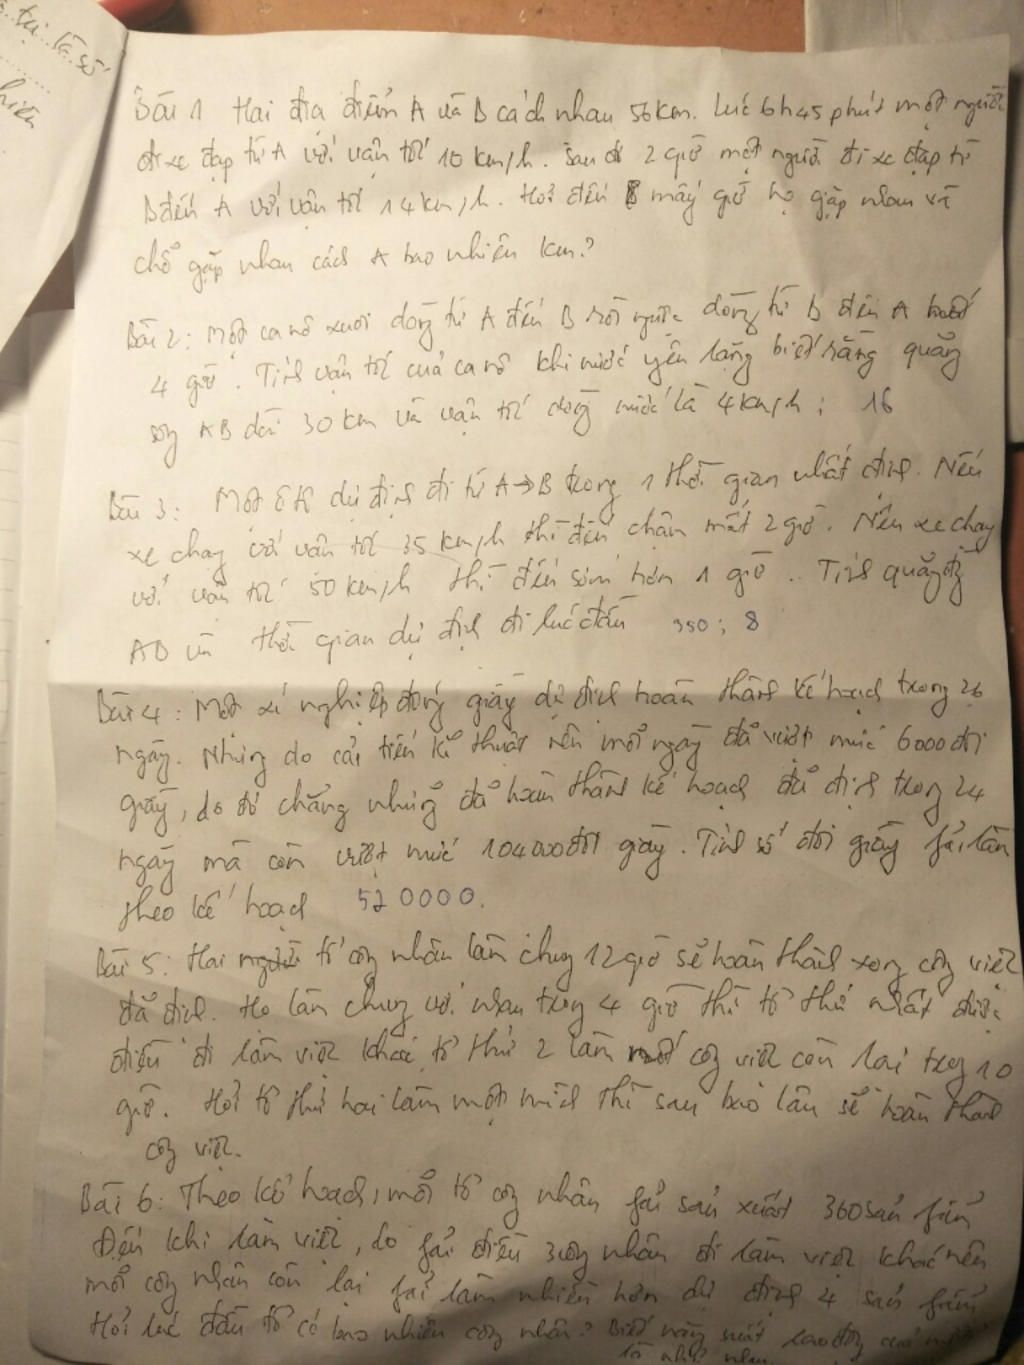 tại là số
nhiên
Bài 1 Hai địa điểm A và B cách nhau 56km. Lúc 6h45 phút một người
đi xe đạp từ A với vận tốc 10 km/h. Sau đó 2 giờ một người đi xe đạp từ
B đến A với vận tốc 14 km/h. Hỏi đến mấy giờ họ gặp nhau và
chỗ gặp nhau cách A bao nhiêu km?
Bài 2: Một ca nô xuôi dòng từ A đến B rồi ngược dòng từ B đến A hết
4 giờ. Tính vận tốc của ca nô khi nước yên lặng biết rằng quãng
sông AB dài 30 km và vận tốc dòng nước là 4 km/h; 16
Bài 3: Một ô tô dự định đi từ A→B trong 1 thời gian nhất định. Nếu
xe chạy với vận tốc 35 km/h thì đến chậm mất 2 giờ. Nếu xe chạy
với vận tốc 50 km/h thì đến sớm hơn 1 giờ.. Tính quãng đg
AB và thời gian dự định đi lúc đầu 350; 8
Bài 4: Một xí nghiệp đóng giày dự định hoàn thành kế hoạch trong 26
ngày. Nhưng do cải tiến kĩ thuật nên mỗi ngày đã vượt mức 6000 đôi
giày, do đó chẳng những đã hoàn thành kế hoạch đã định trong 24
ngày mà còn vượt mức 104000 đôi giày. Tính số đôi giày fải làm
theo kế hoạch 520000.
Bài 5: Hai tổ công nhân làm chung 12 giờ sẽ hoàn thành xong công việc
đã định. Họ làm chung với nhau trong 4 giờ thì tổ thứ nhất được
điều đi làm việc khác tổ thứ 2 làm nốt công việc còn lại trong 10
giờ. Hỏi tổ thứ hai làm một mình thì sau bao lâu sẽ hoàn thành
công việc.
Bài 6: Theo kế hoạch, mỗi tổ công nhân fải sản xuất 360 sản fẩm
Đến khi làm việc, do fải điều 3 công nhân đi làm việc khác nên
mỗi công nhân còn lại fải làm nhiều hơn dự định 4 sản fẩm
Hỏi lúc đầu tổ có bao nhiêu công nhân? Biết rằng năng suất lao động của mỗi
là như nhau